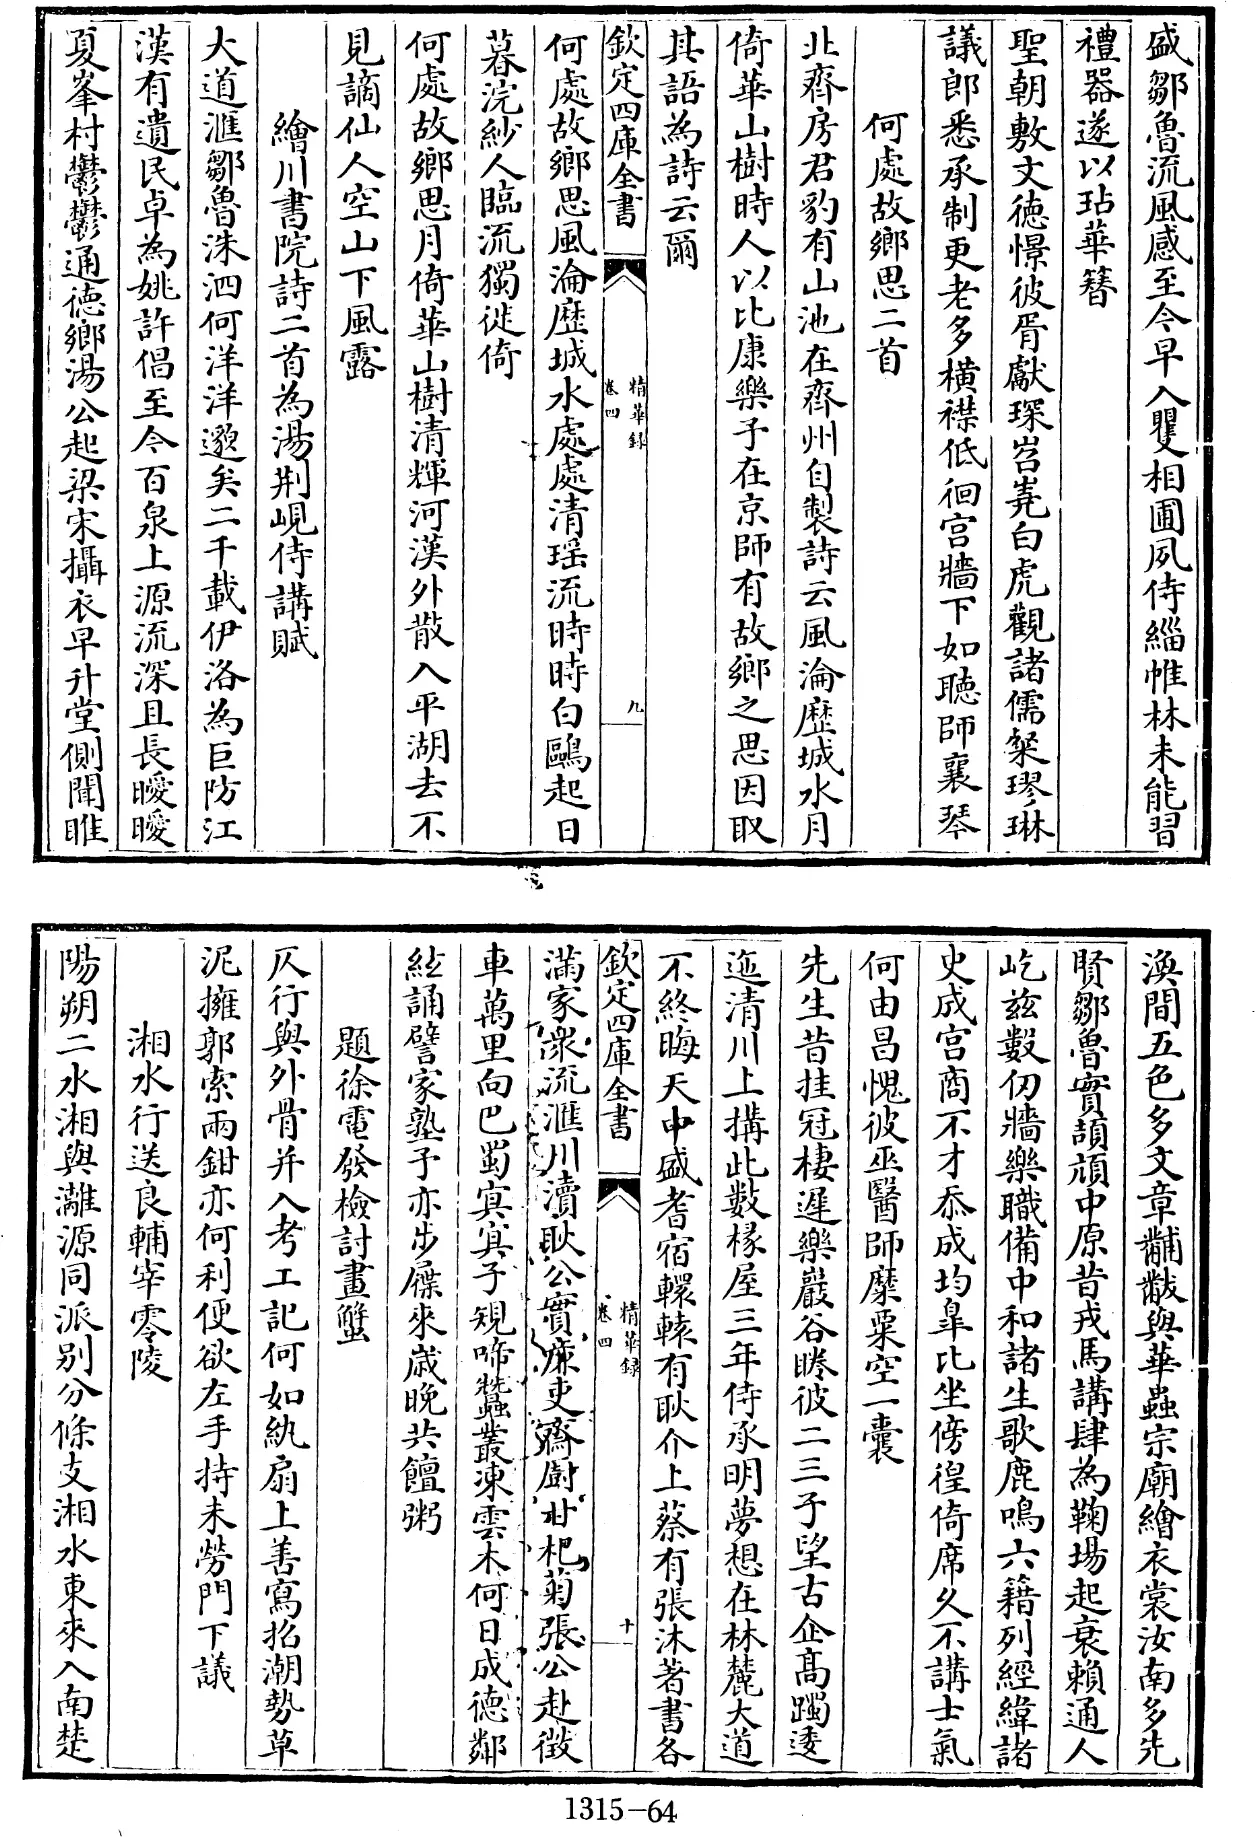 盛鄒魯流風感至今早入瞿相圃夙侍緇帷林未能習
禮器遂以玷華簪
聖朝敷文德憬彼胥獻琛岧嶤白虎觀諸儒粲璆琳
議郎悉承制更老多橫襟低徊宫牆下如聽師襄琴
何處故鄉思二首
北齊房君豹有山池在齊州自製詩云風淪歴城水月
倚華山樹時人以比康樂子在京師有故鄉之思因取
其語為詩云爾
欽定四庫全書
精華録
卷四
九
何處故鄉思風淪歴城水處處清瑶流時時白鷗起日
暮浣紗人臨流獨徙倚
何處故鄉思月倚華山樹清輝河漢外散入平湖去不
見謫仙人空山下風露
繪川書院詩二首為湯荆峴侍講賦
大道滙鄒魯洙泗何洋洋邈矣二千載伊洛為巨防江
漢有遺民卓為姚許倡至今百泉上源流深且長曖曖
夏峯村鬱鬱通德鄉湯公起梁宋攝衣早升堂側聞睢
渙間五色多文章黼黻與華蟲宗廟繪衣裳汝南多先
賢鄒魯實頡頏中原昔戎馬講肆為鞠場起衰賴通人
屹兹數仞牆樂職備中和諸生歌鹿鳴六籍列經緯諸
史成宫商不才忝成均臯比坐傍徨倚席久不講士氣
何由昌愧彼巫醫師糜粟空一囊
先生昔挂冠棲遲樂巖谷睠彼二三子望古企高躅逶
迤清川上搆此數椽屋三年侍承明夢想在林麓大道
不終晦天中盛耆宿轘轅有耿介上蔡有張沐著書各
欽定四庫全書
精華録
卷四
十
滿家衆流滙川瀆耿公實㢘吏齋廚甘杞菊張公赴徵
車萬里向巴蜀寘寘子規啼蠶叢凍雲木何日成德鄰
絃誦譬家塾予亦步屧來歲晚共饘粥
題徐電發檢討畫蟹
仄行與外骨并入考工記何如紈扇上善寫招潮勢草
泥擁郭索兩鉗亦何利便欲左手持未勞門下議
湘水行送良輔宰零陵
陽朔二水湘與灕源同派别分條支湘水東來入南楚
1315-64